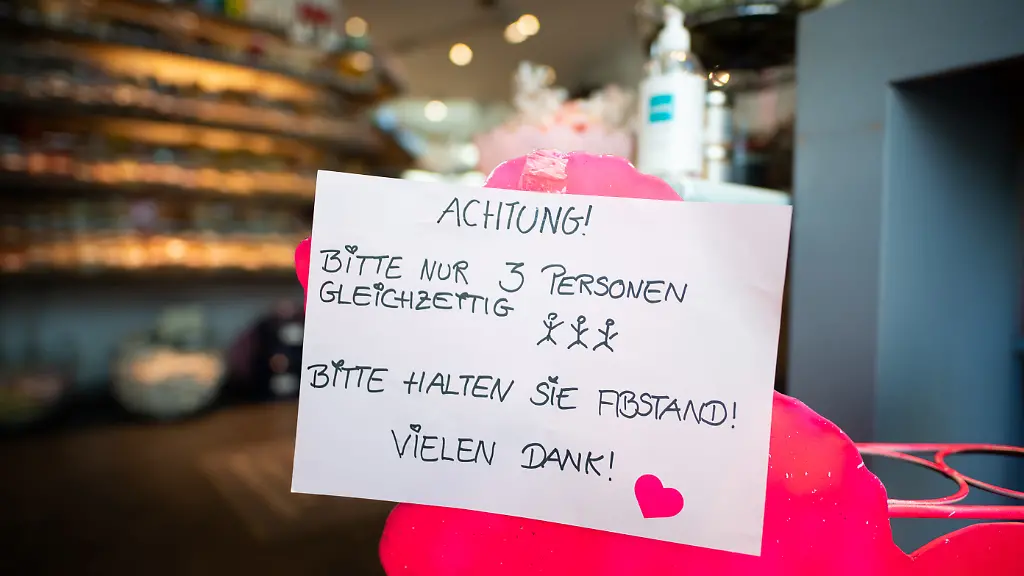 ACHTUNG!
BITTE NUR 3 PERSONEN
GLEICHZEITIG
BITTE HALTEN SIE ABSTAND!
VIELEN DANK!